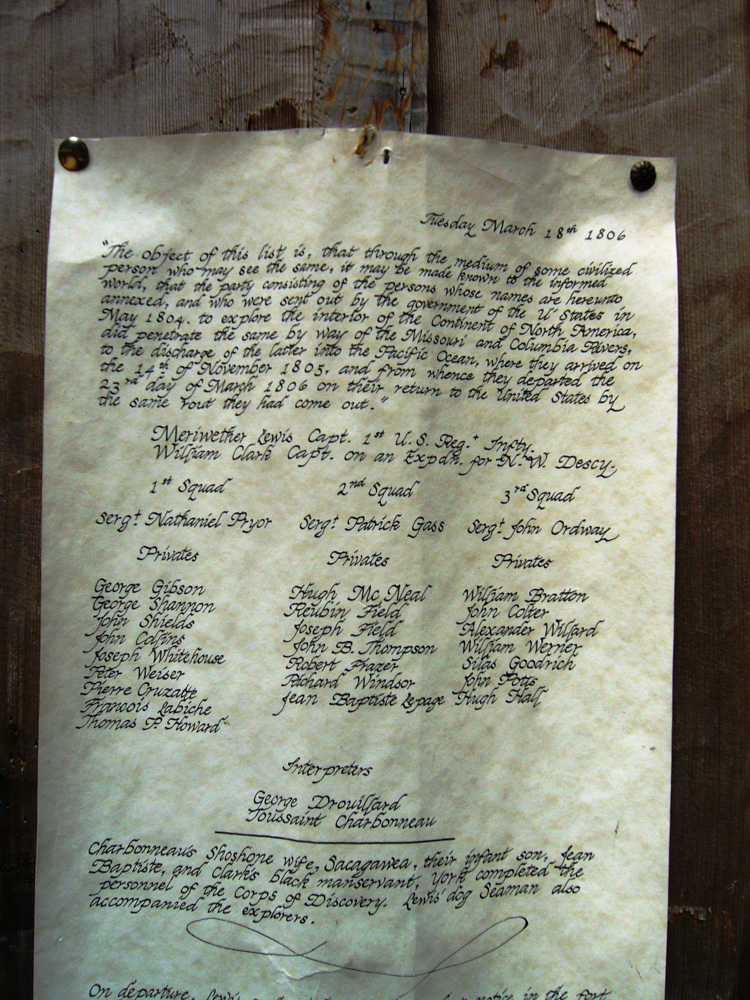 Tuesday March 18th 1806
"The object of this list is, that through the medium of some civilized
person who may see the same, it may be made known to the informed
world, that the party consisting of the persons whose names are hereunto
annexed, and who were sent out by the government of the U'States in
May 1804. to explore the interior of the Continent of North America,
did penetrate the same by way of the Missouri and Columbia Rivers,
to the discharge of the latter into the Pacific Ocean, where they arrived on
the 14th of November 1805, and from whence they departed the
23rd day of March 1806 on their return to the United States by
the same rout they had come out."
Meriwether Lewis Capt. 1st U.S. Reg.t Infty.
William Clark Capt. on an Expdn. for N.W. Descy.
1st Squad 2nd Squad 3rd Squad
Serg.t Nathaniel Pryor Serg.t Patrick Gass Serg.t John Ordway
Privates Privates Privates
George Gibson Hugh Mc Neal William Bratton
George Shannon Reubin Field John Colter
John Shields Joseph Field Alexander Willard
John Collins John B. Thompson William Werner
Joseph Whitehouse Robert Frazer Silas Goodrich
Peter Weiser Richard Windsor John Potts
Pierre Cruzatte Jean Baptiste Lepage Hugh Hall
Francois Labiche
Thomas P. Howard
Interpreters
George Drouillard
Toussaint Charbonneau
Charbonneau's Shoshone wife, Sacagawea, their infant son, Jean
Baptiste, and Clark's black manservant, York completed the
personnel of the Corps of Discovery. Lewis' dog Seaman also
accompanied the explorers.
On departure, notice in the fort